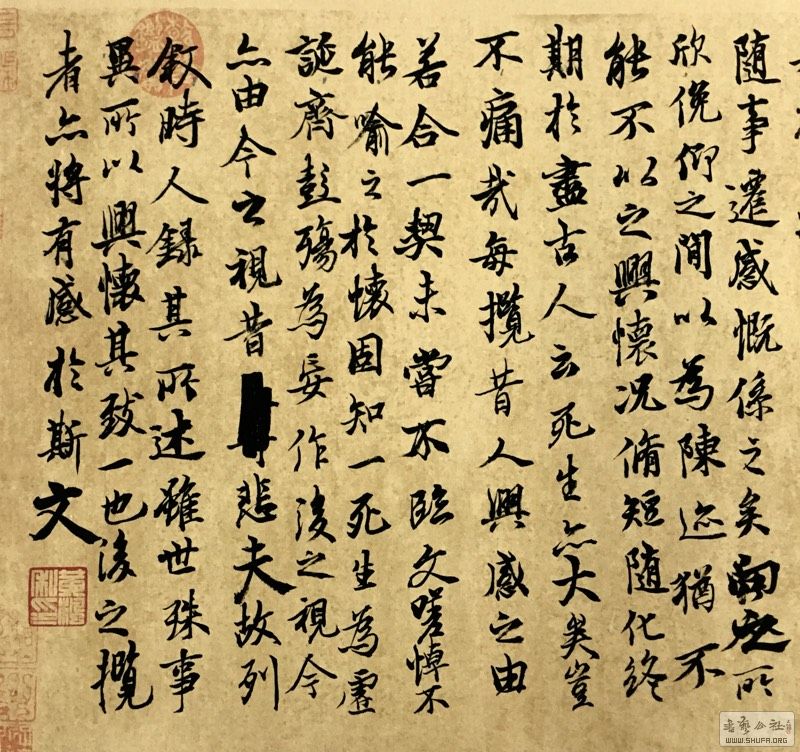 隨事遷感慨係之矣向之所
欣俛仰之間以為陳迹猶不
能不以之興懷况脩短隨化終
期於盡古人云死生亦大矣豈
不痛哉每攬昔人興感之由
若合一契未嘗不臨文嗟悼不
能喻之於懷固知一死生為虛
誕齊彭殤為妄作後之視今
亦由今之視昔悲夫故列
敘時人錄其所述雖世殊事
異所以興懷其致一也後之攬
者亦將有感於斯文
書藝公社
WWW.SHUFA.ORG